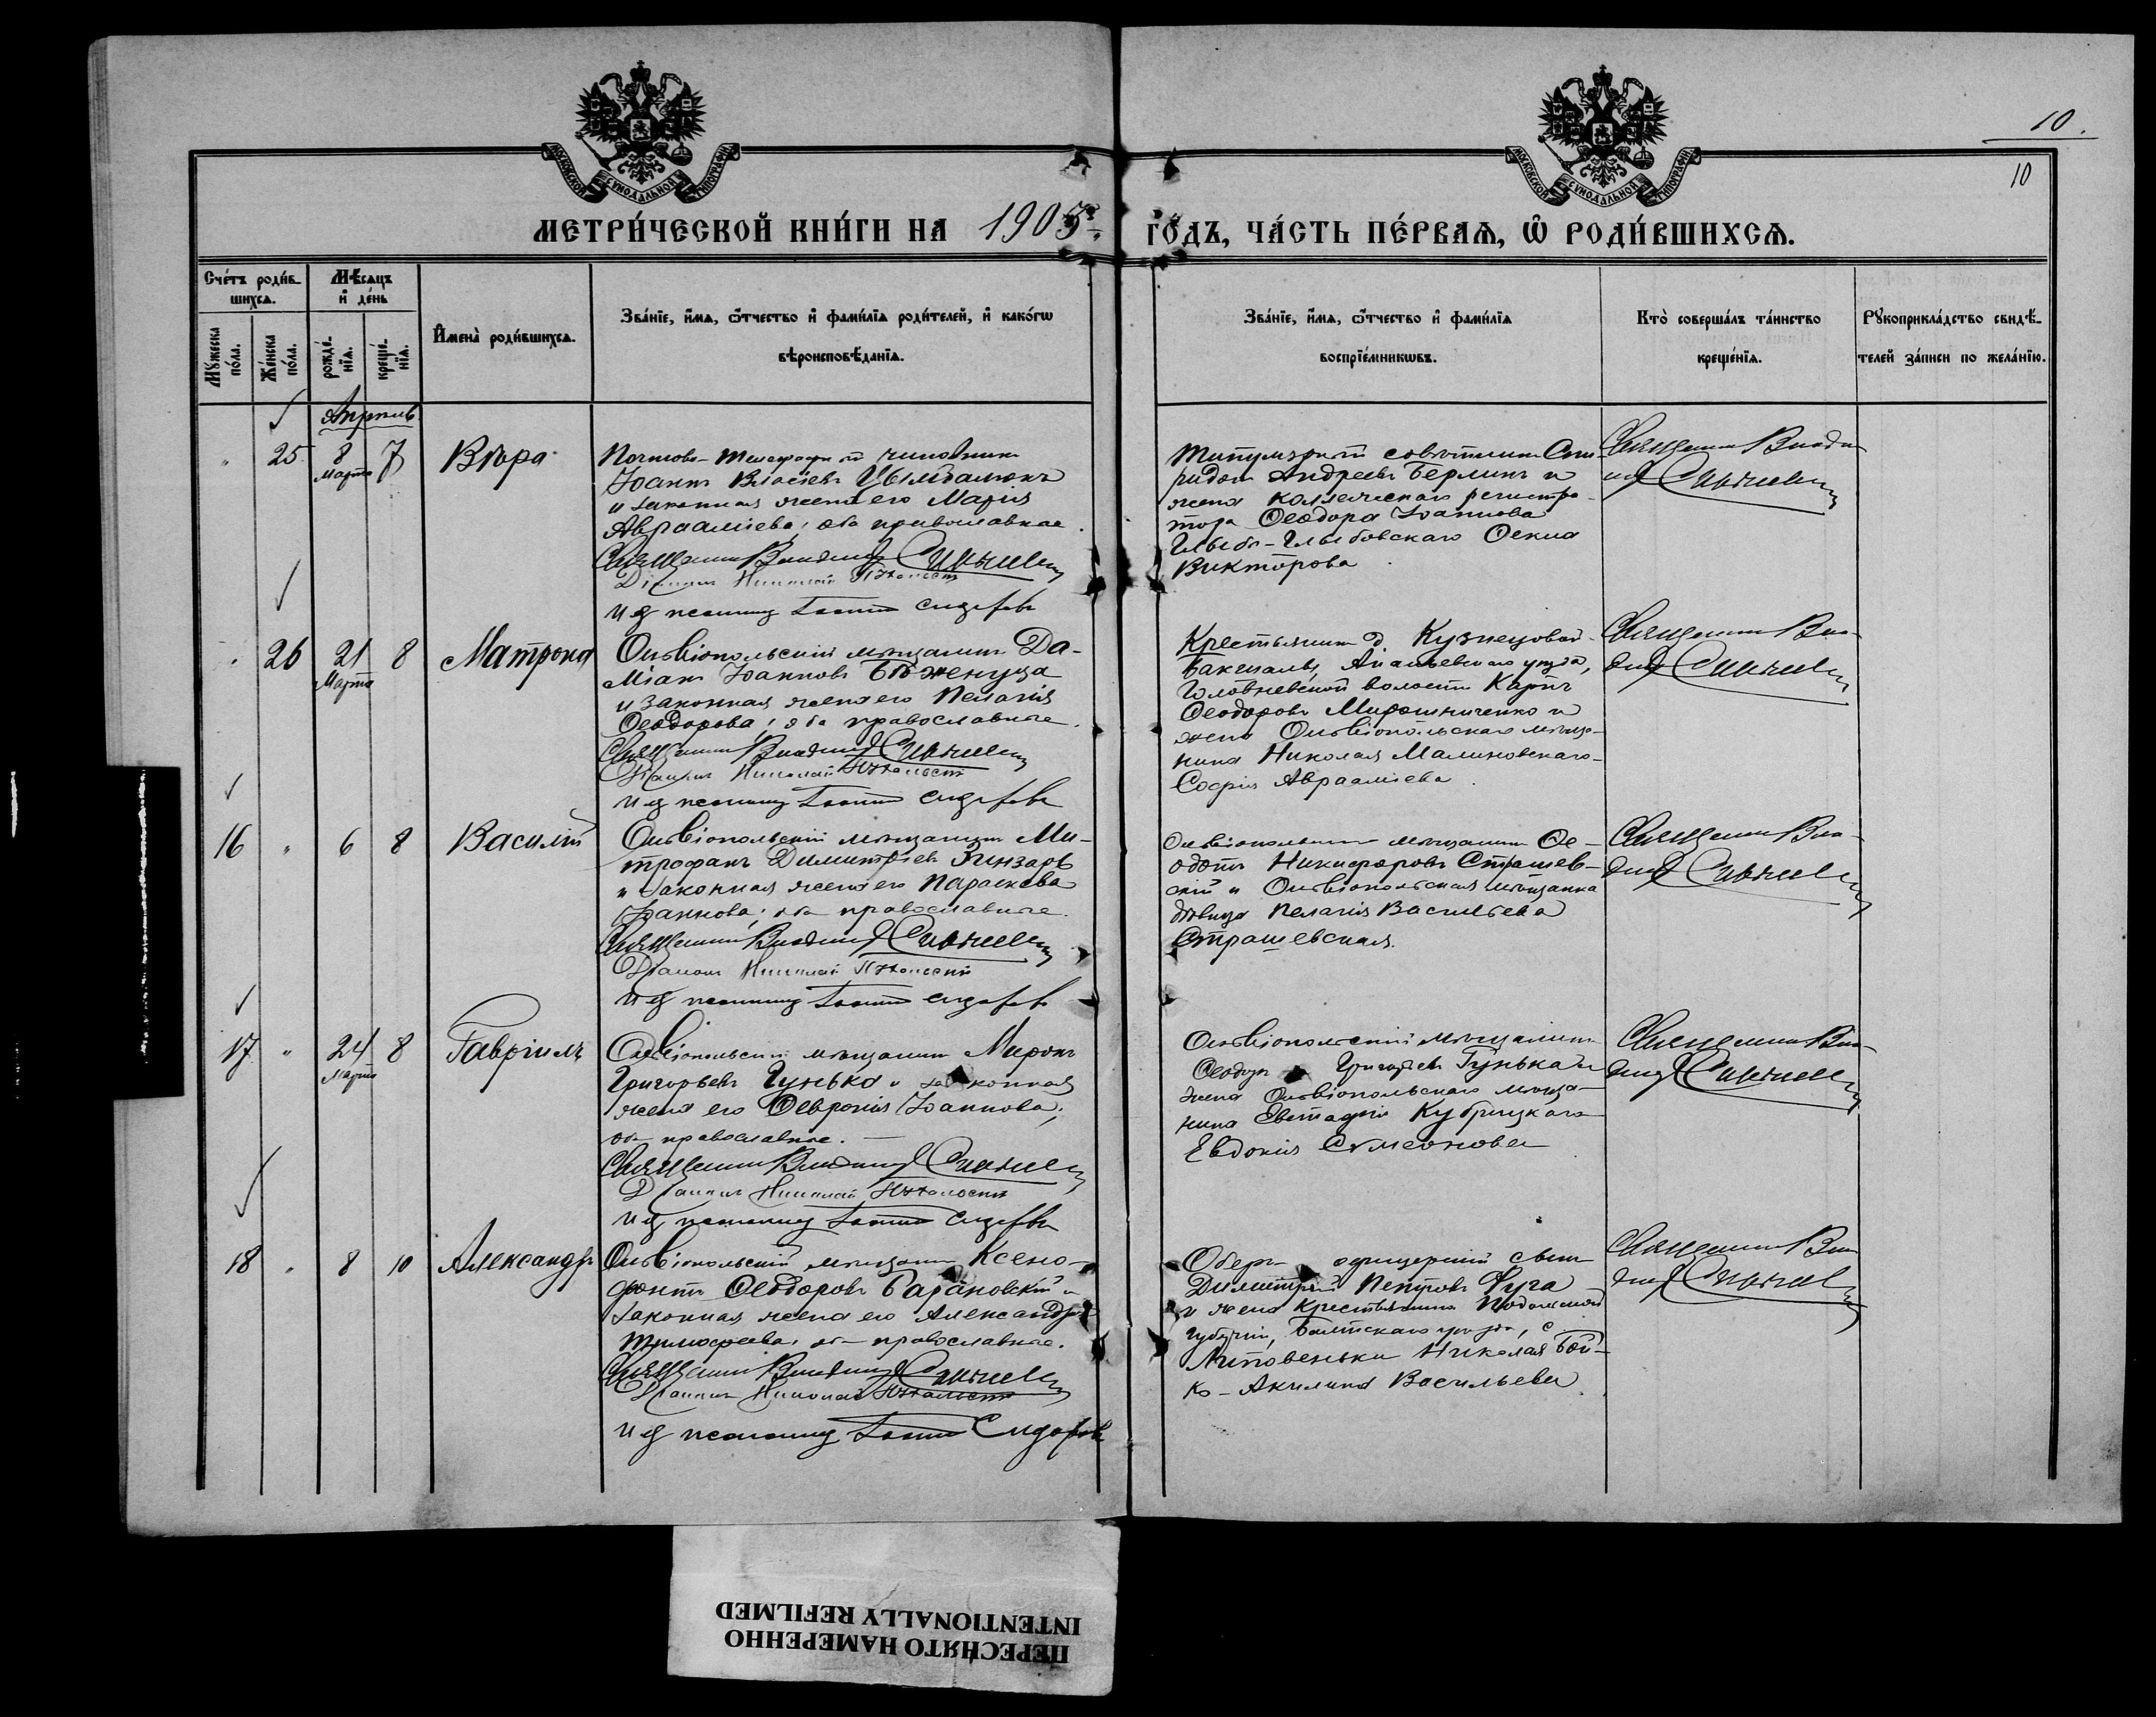 10.
10
МОСКОВСКОЙ СѴНОДАЛЬНОЙ ТИПОГРАФІИ
МОСКОВСКОЙ СѴНОДАЛЬНОЙ ТИПОГРАФІИ
МЕТРИ́ЧЕСКОЙ КНИ́ГИ НА 1905 ГО́ДЪ, ЧА́СТЬ ПЕ́РВАѦ, Ѡ РОДИ́ВШИХСѦ.
Сче́тъ роди́в-
шихсѧ.
Мꙋ́жеска по́ла.
Же́нска по́ла.
Мѣ́сѧцъ
и҆ де́нь
рожде́-
нїѧ.
креще́-
нїѧ.
И҆мена̀ роди́вшихсѧ.
Зва́нїе, и҆́мѧ, ѻ҆́тчество и҆ фами́лїѧ роди́телей, и҆ како́гѡ
вѣроисповѣ́данїѧ.
Зва́нїе, и҆́мѧ, ѻ҆́тчество и҆ фами́лїѧ
воспрїе́мникѡвъ.
Кто̀ соверша́лъ та́инство
креще́нїѧ.
Рꙋкоприкла́дство свидѣ́-
телей за́писи по жела́нїю.
Апрѣль
" 25 8 Марта 7 Вѣра
Почтово-Телеграфный чиновникъ
Іоаннъ Власіевъ
и законная жена его Марія
Авраамiева, оба православные.
Священникъ Владимiръ
Дiаконъ Николай
И д псаломщ Сидоровъ
Титулярный совѣтникъ Спи-
ридонъ Андреевъ Берлинъ и
жена коллежскаго регистра-
тора Ѳеодора Іоаннова
Глыбо-Глыбовскаго Ѳекла
Викторова
Священникъ Влади-
" 26 21 Марта 8 Матрона
Ольвіопольскій мѣщанинъ Да-
міанъ Іоанновъ Боженуца
и законная жена его Пелагія
Ѳеодорова, оба православные.
Священникъ Владимiръ
Дiаконъ Николай
И д псаломщ Сидоровъ
Крестьянинъ д. Кузнецовой-
Бакшалы, Ананьевскаго уѣзда,
Головневской волости Карпъ
Ѳеодоровъ Мирошниченко и
жена Ольвіопольскаго мѣща-
нина Николая Малиновскаго-
Софія Авраамiева.
Священникъ Вла-
16 " 6 8 Василій
Ольвіопольскій мѣщанинъ Ми-
трофанъ Димитріевъ Гинзарь
и законная жена его Параскева
Іоаннова; оба православные.
Священникъ Владимiръ
Дiаконъ Николай
И д псаломщ Сидоровъ
Ольвіопольскій мѣщанинъ Ѳе-
одотъ Никифоровъ Страшев-
скій и Ольвіопольская мѣщанка
дѣвица Пелагія Васильева
Страшевская.
Священникъ Вла-
17 " 24 Марта 8 Гавріилъ
Ольвіопольскій мѣщанинъ Миронъ
Григорьевъ Гунько и законная
жена его Ѳевронія Іоаннова;
оба православные.
Священникъ Владимiръ
Дiаконъ Николай
И д псаломщ Сидоровъ
Ольвіопольскій мѣщанинъ
Ѳеодоръ Григорьевъ Гунька и
жена Ольвіопольскаго мѣща-
нина Евстафія Кубрицкаго
Евдокія Сѵмеонова
Священникъ Вла-
18 " 8 10 Александръ
Ольвіопольскій мѣщанинъ Ксено-
фонтъ Ѳеодоровъ Барановскій и
законная жена его Александра
Тимофеева, оба православные.
Священникъ Владимiръ
Дiаконъ Николай
И д псаломщ Сидоровъ
Оберъ-офицерскій сынъ
Димитрій Петровъ Фуга
и жена крестьянина Подольской
губерніи, Балтскаго уѣзда, с.
Липовеньки Николая Бой-
ко - Акилина Васильева
Священникъ Вла-
ПЕРЕСНЯТО НАМЕРЕННО
INTENTIONALLY REFILMED